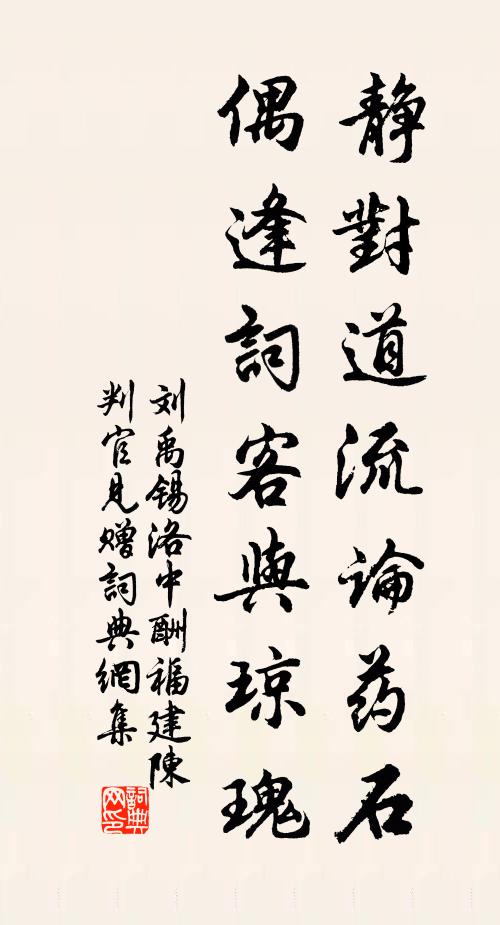 靜對道流論药石
偶逢詞客與琼瑰
刘禹锡洛中酬福建陳
判官見赠詞典網集
詞典网印